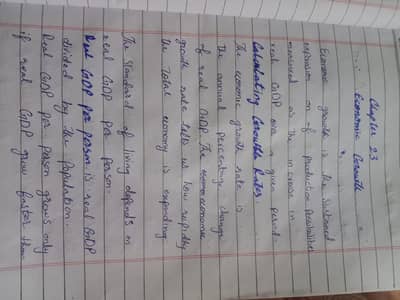 Chapter 23
Economic Growth
Economic growth is the sustained
expansion of production possibilities
measured as the increase in
real GDP over a given period
Calculating Growth Rates
The economic growth rate is
The annual percentage change
of real GDP. The economic
growth rate tells us how rapidly
the total economy is expanding
The standard of living depends on
real GDP per person.
Real GDP per person is real GDP
divided by the population.
Real GDP per person grows only
if real GDP grow faster than